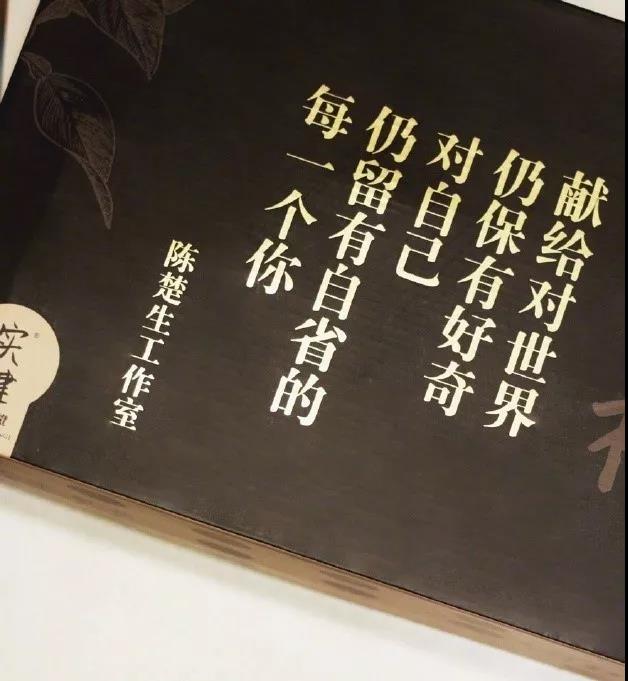 献给对世界
仍保有好奇
对自己
仍留有自省的
每一个你
陈楚生工作室
实建